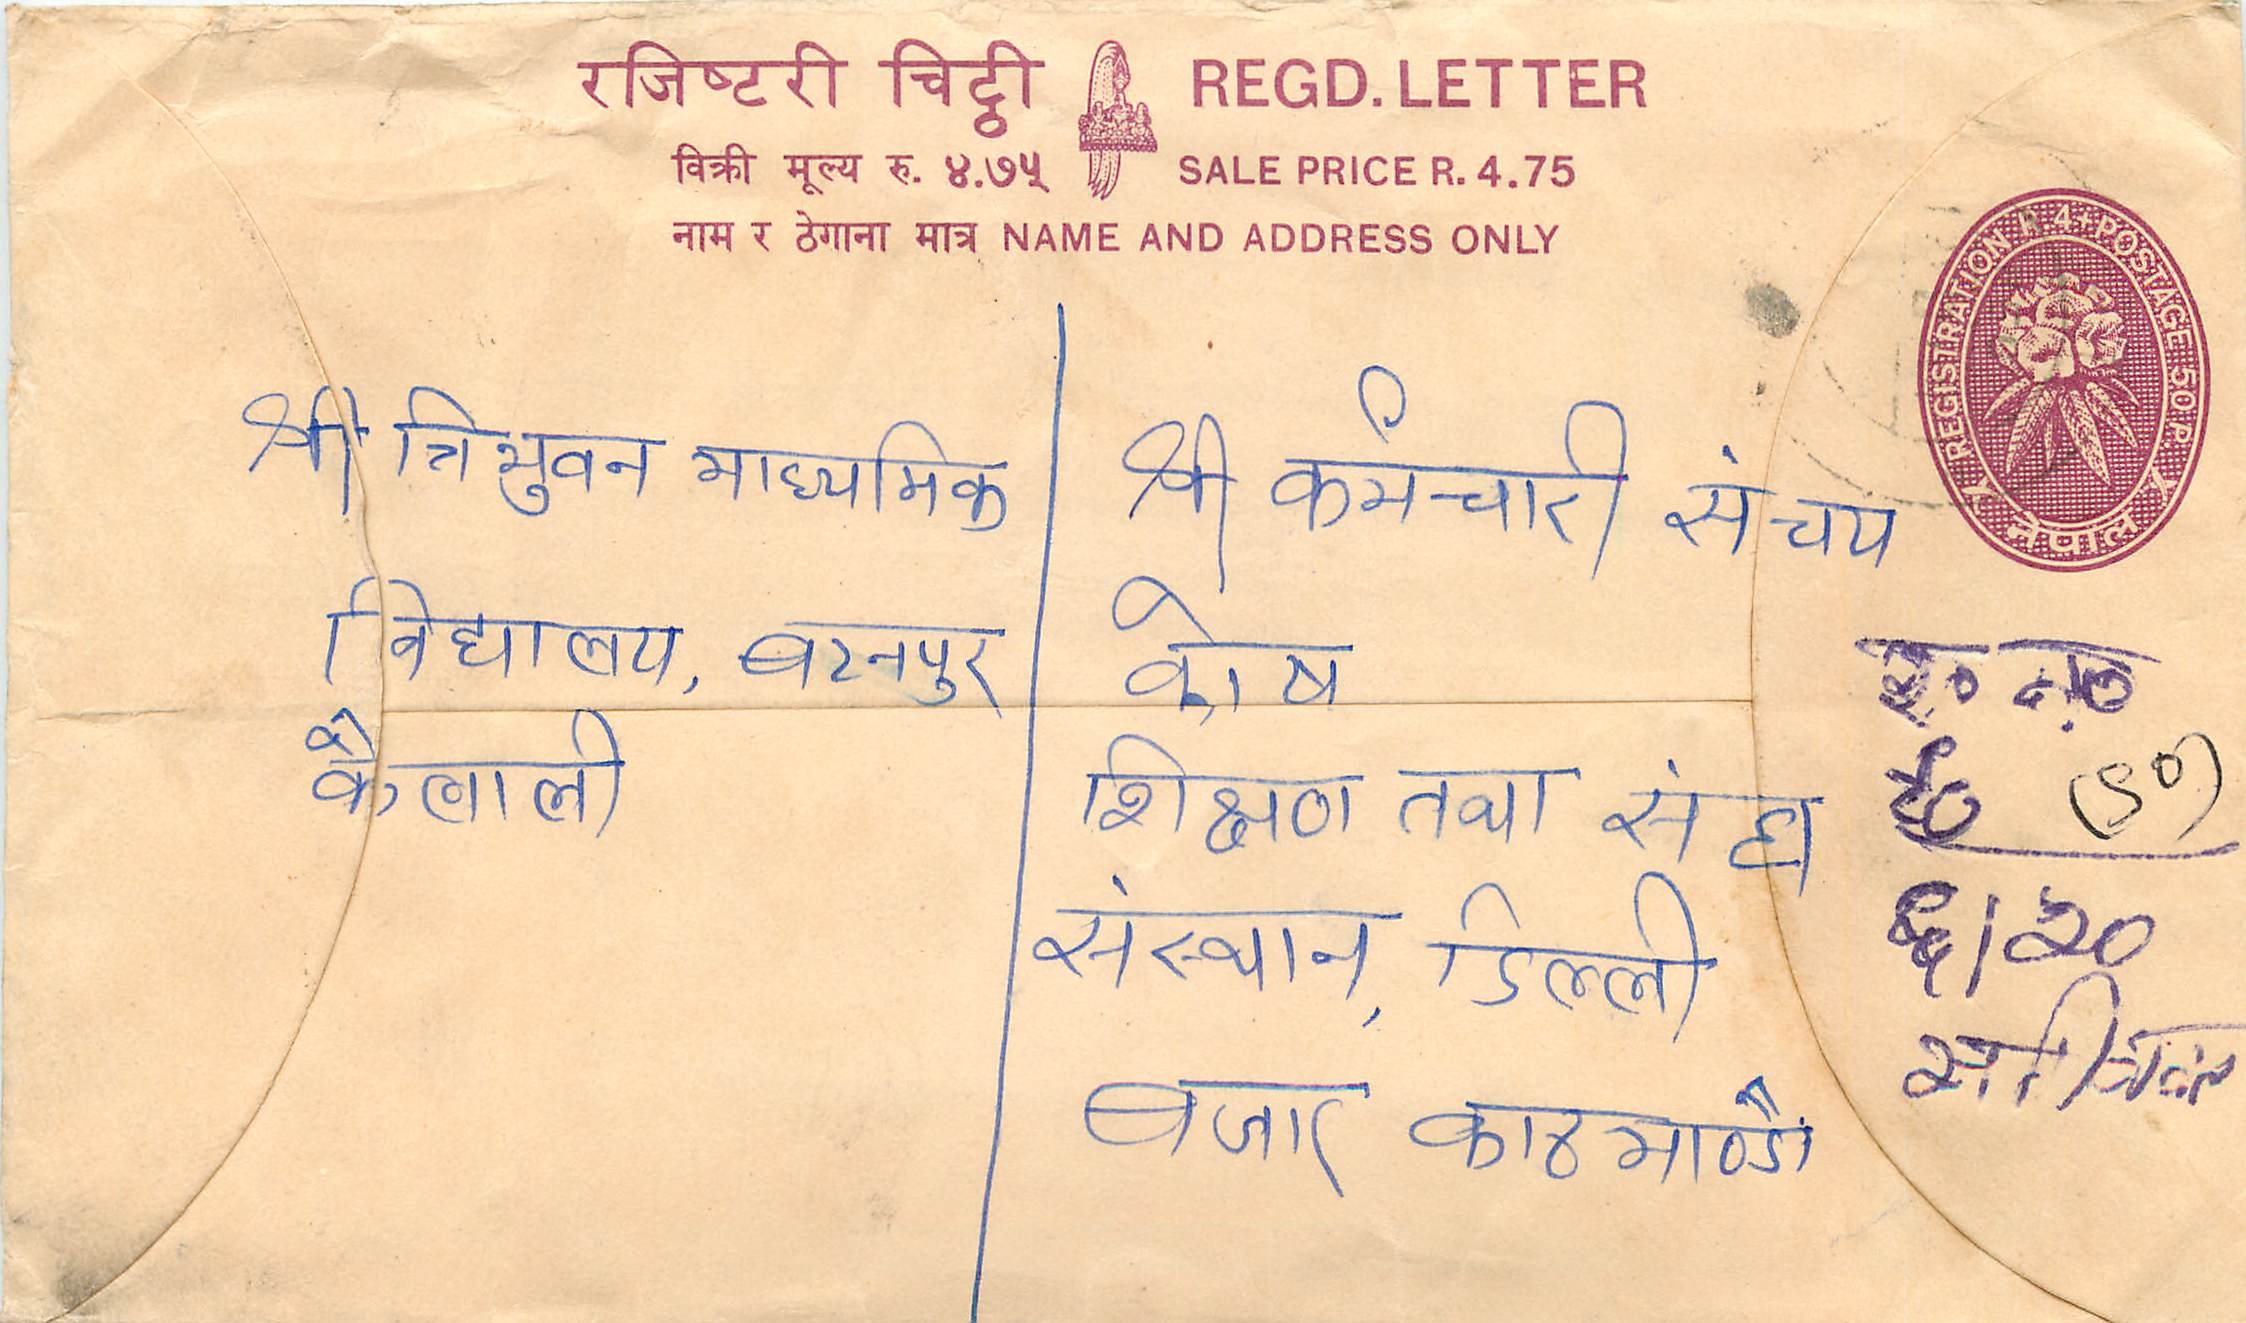 रजिष्टरी चिट्ठी REGD. LETTER
विक्री मूल्य रु. ४.७५ SALE PRICE R. 4.75
नाम र ठेगाना मात्र NAME AND ADDRESS ONLY
REGISTRATION R 4+POSTAGE:50 P.
नेपाल
श्री त्रिभुवन माध्यमिक
विद्यालय, बटनपुर
कैलाली
श्री कर्मचारी संचय
कोष
शिक्षण तथा संघ
संस्थान, डिल्ली
बजार काठमाण्डौ